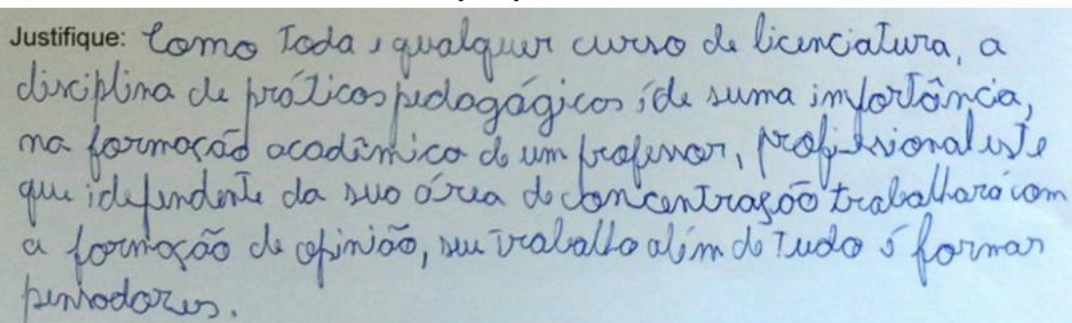 Justifique: Como toda e qualquer curso de licenciatura, a
disciplina de práticas pedagógicas é de suma importância,
na formação acadêmica de um professor, profissional este
que idependente da sua área de concentração trabalhará com
a formação de opinião, seu trabalho além de tudo é formar
pensadores.